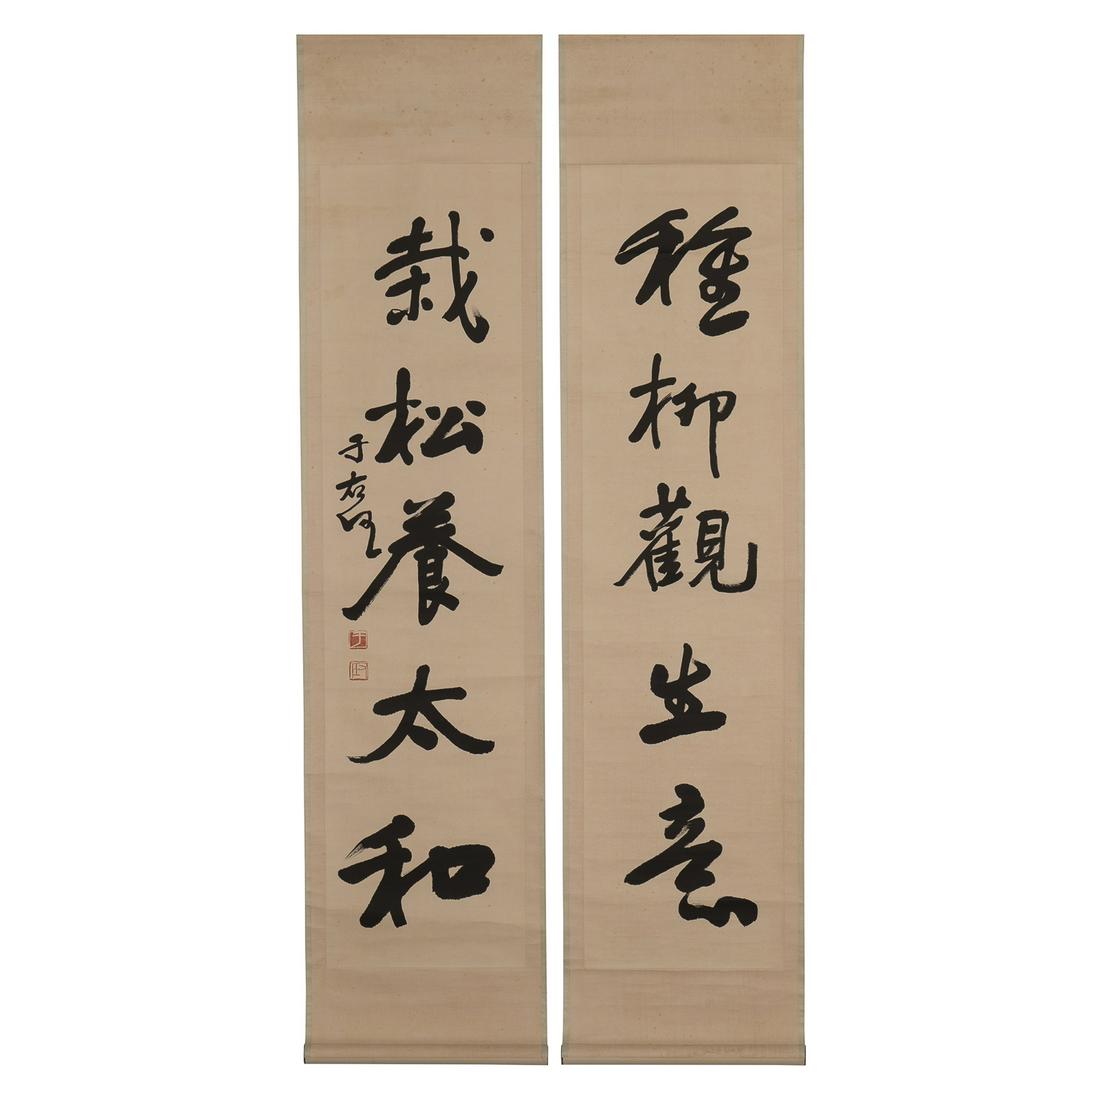 種柳觀生意
栽松養太和
于右任